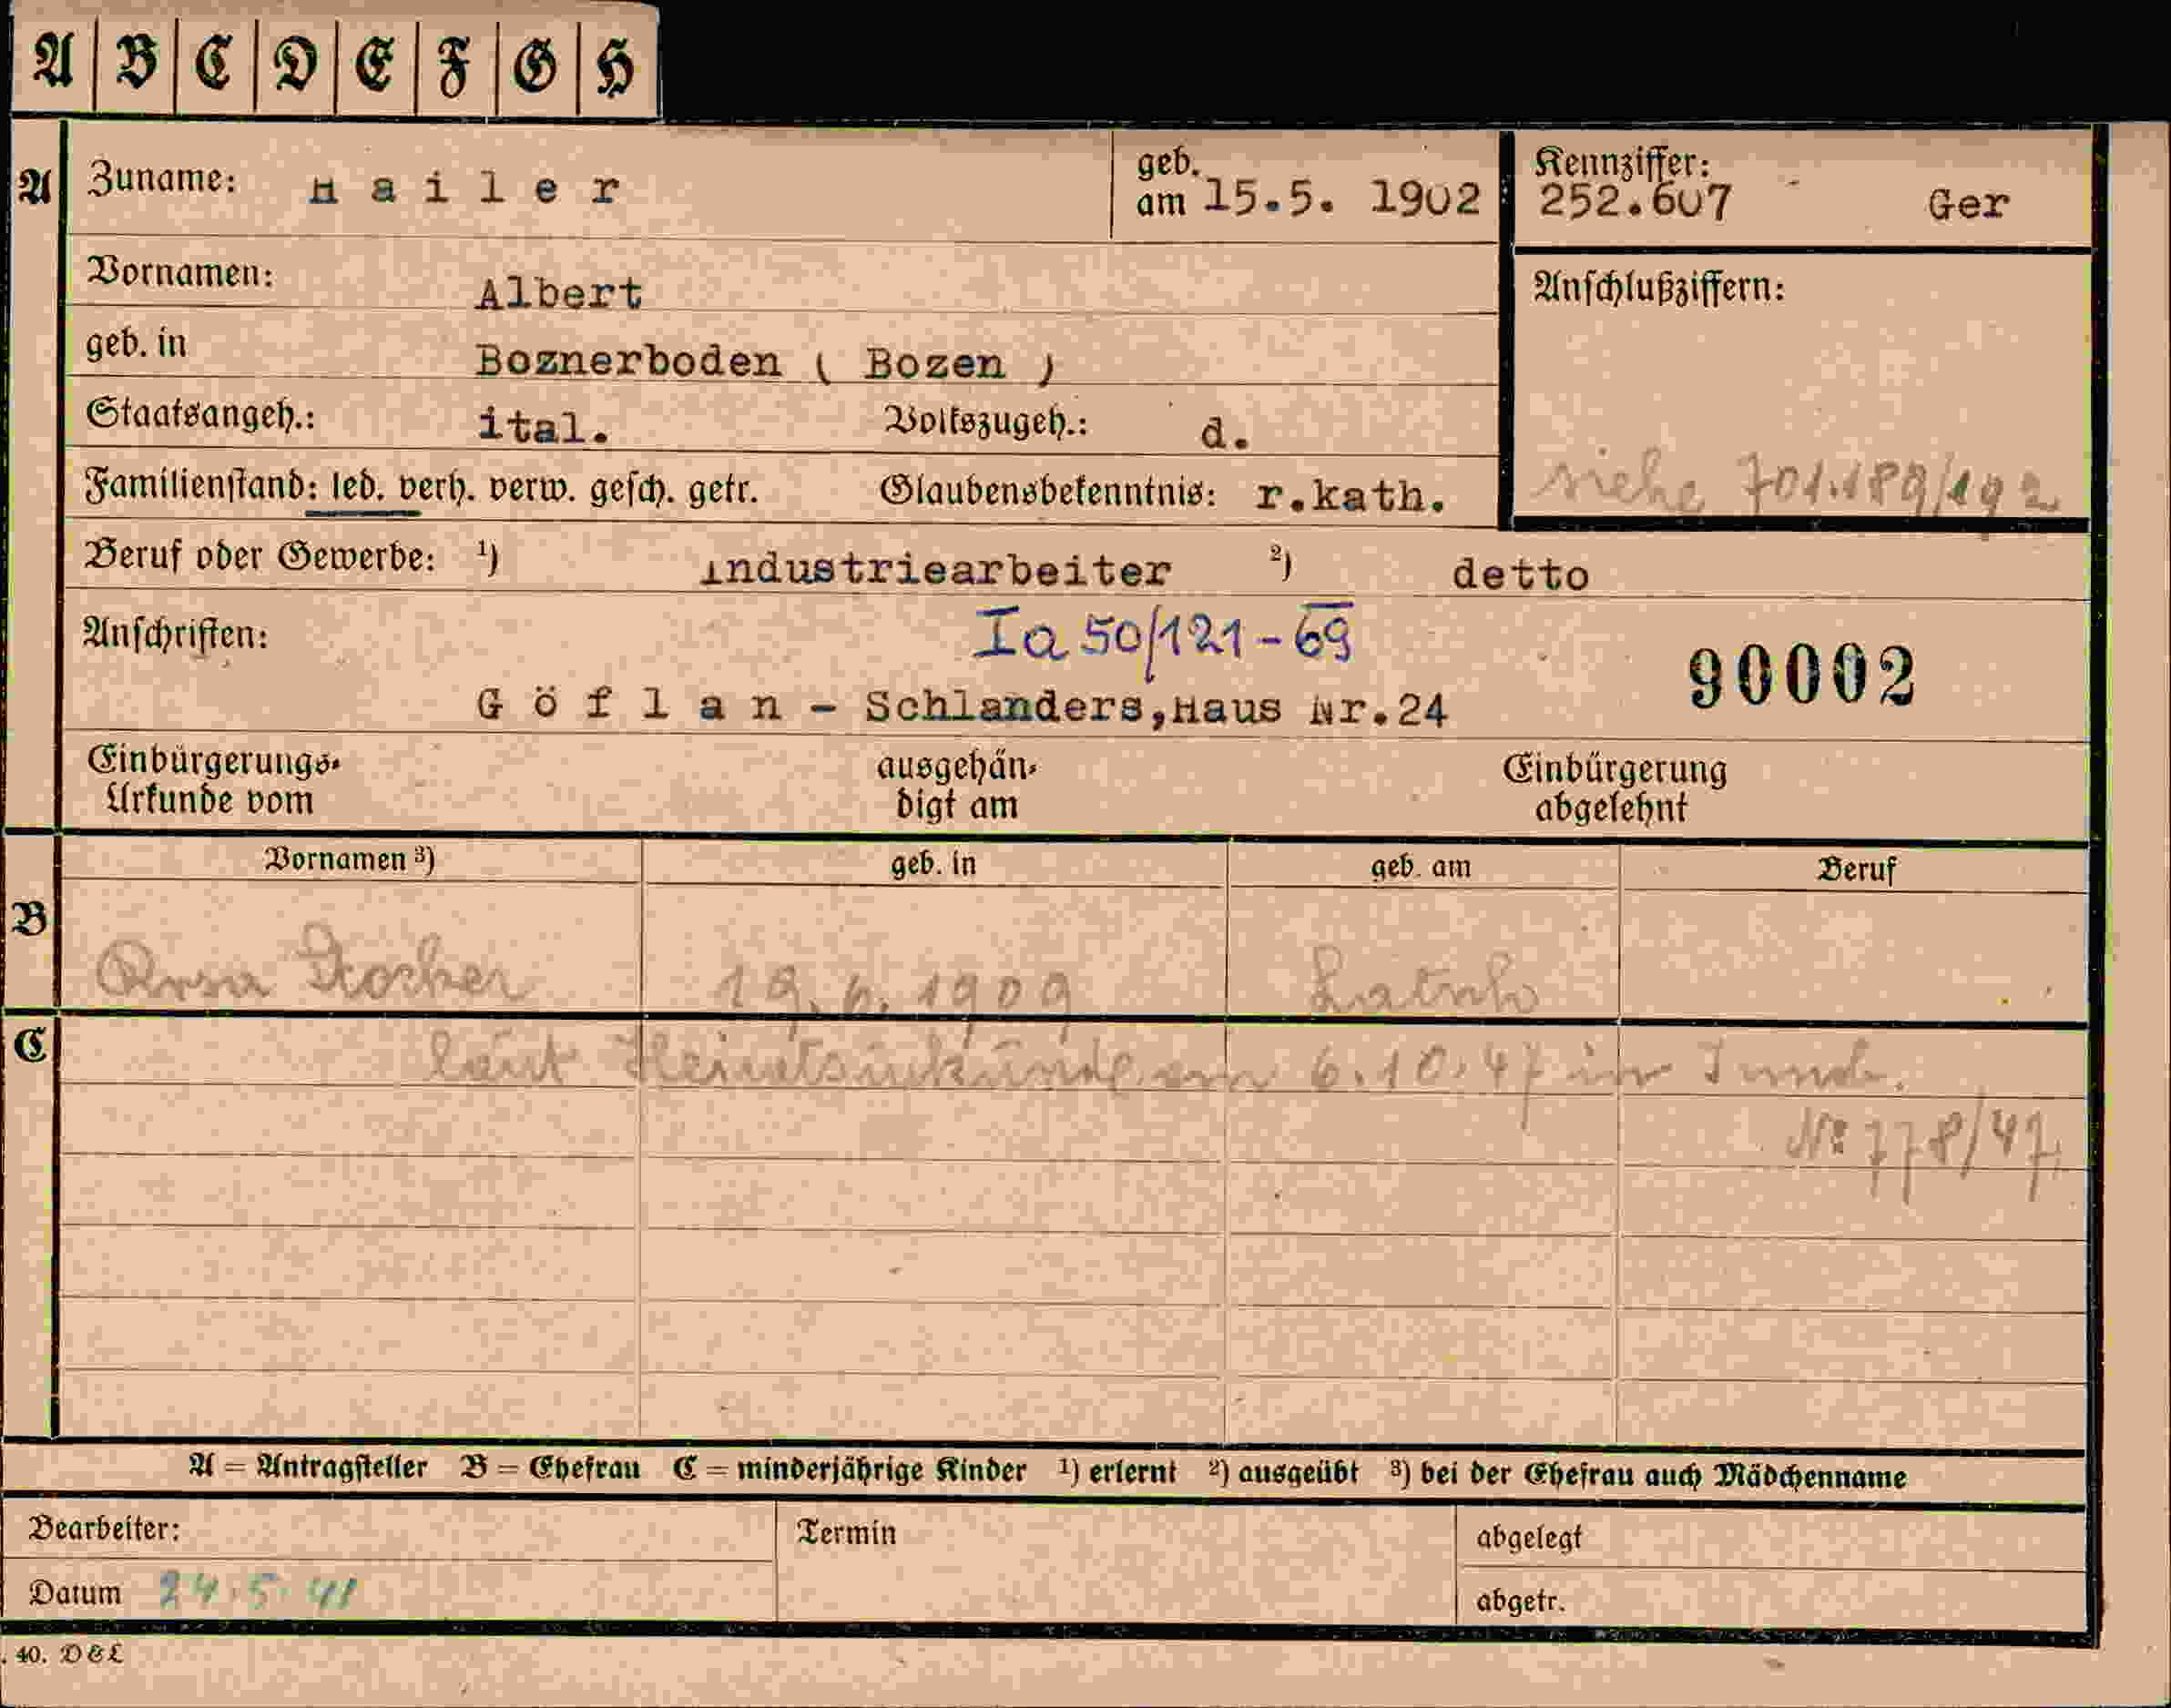 A B C D E F G H
A Zuname: Hailer geb. am 15.5. 1902 Kennziffer: 252.607 Ger
Vornamen: Albert Anschlußziffern:
geb. in Boznerboden ( Bozen )
Staatsangeh.: ital. Volkszugeh.: d.
Familienstand: led. verh. verw. gesch. getr. Glaubensbekenntnis: r.kath. siehe 701.189/192
Beruf oder Gewerbe: ¹) Industriearbeiter ²) detto
Anschriften: Ia 50/121-69 90002
Göflan - Schlanders,Haus Nr.24
Einbürgerungs- ausgehän- Einbürgerung
Urkunde vom digt am abgelehnt
Vornamen ³) geb. in geb. am Beruf
B Rosa 19.6.1909 Latsch
C laut Heiratsurkunde vom 6.10.47 in
№ 778/47
A = Antragsteller B = Ehefrau C = minderjährige Kinder ¹) erlernt ²) ausgeübt ³) bei der Ehefrau auch Mädchenname
Bearbeiter: Termin abgelegt
Datum 24.5.41 abgetr.
. 40. D&L